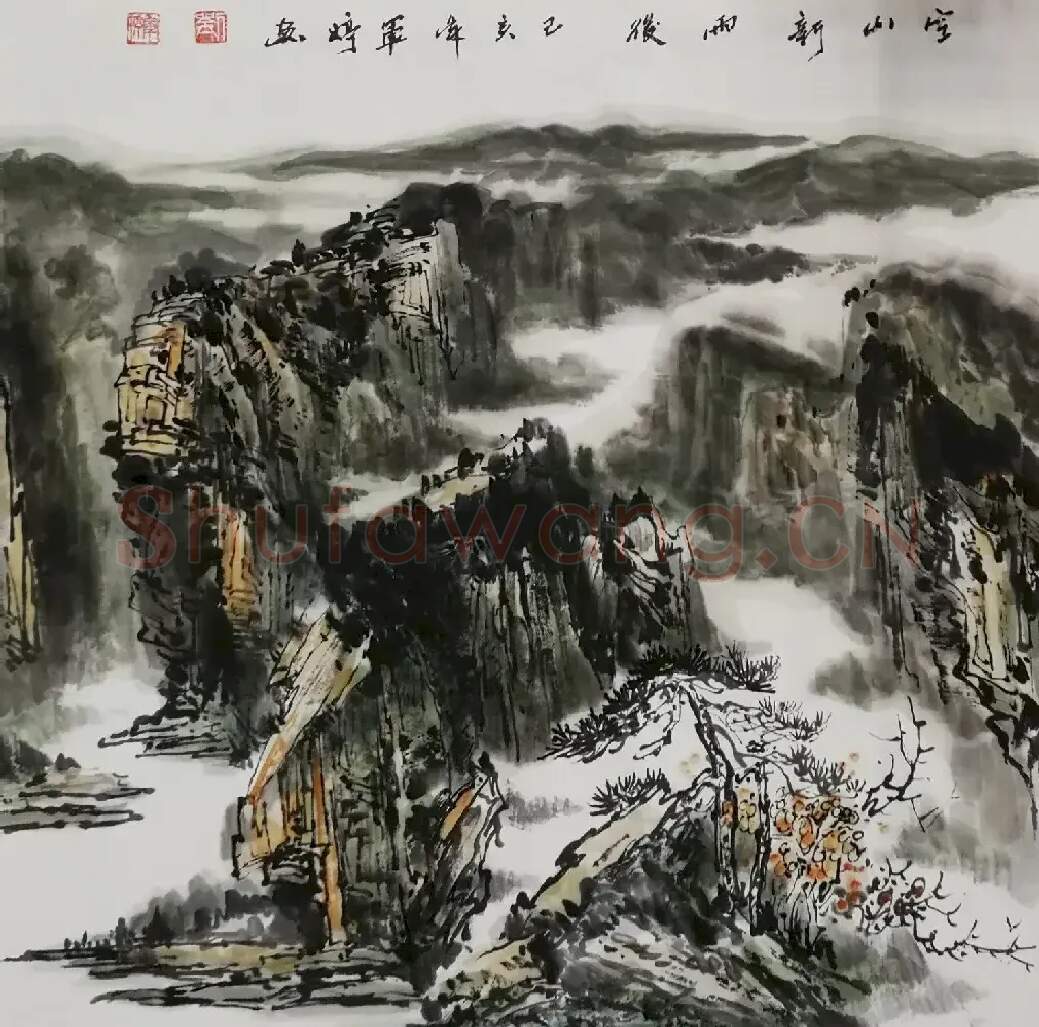 空山新雨後 己亥年軍婷画
Shufawang.CN